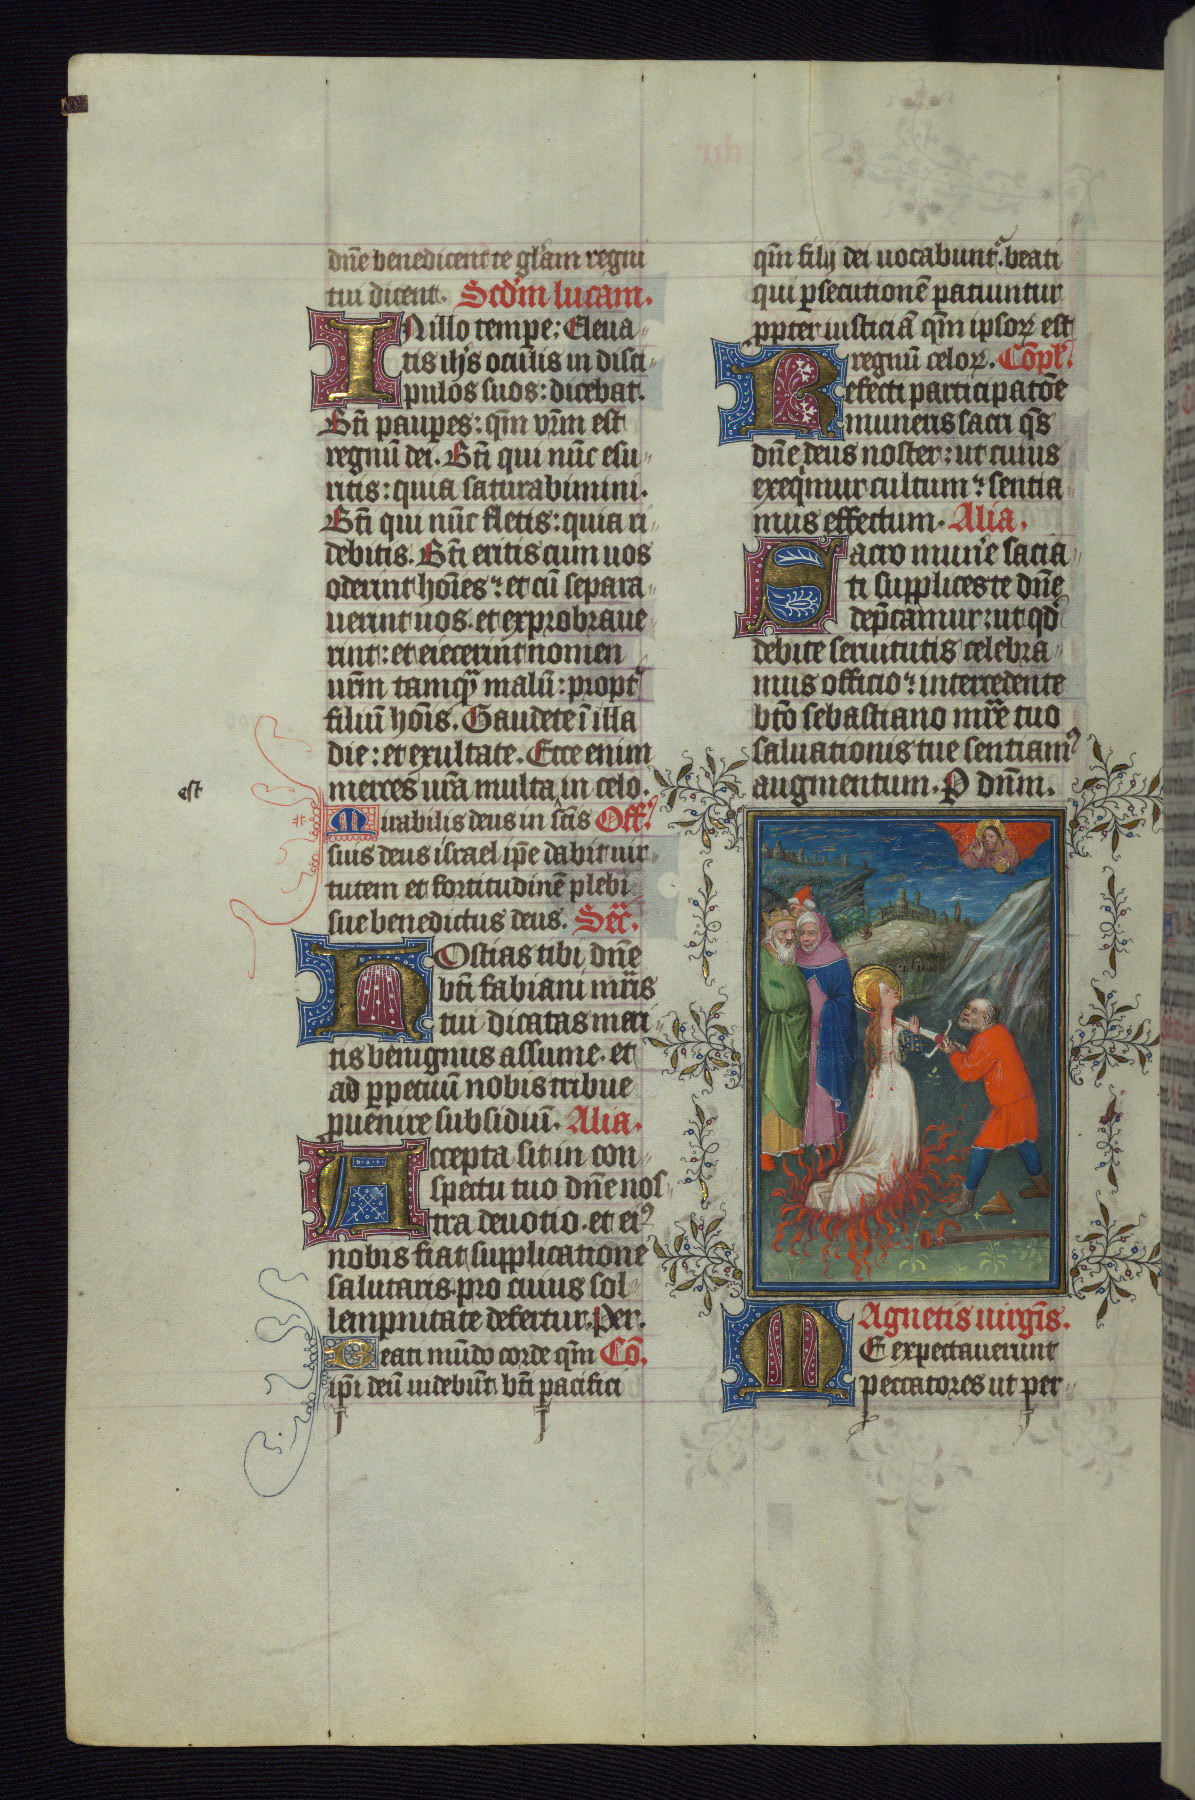 dñe benedicent te gl̃am regni
tui dicent. Scd̃m lucam.
IN illo tempe: Eleua
tis ih̃s oculis in disci
pulos suos: dicebat.
Bt̃i paup̲es: qm̃ vr̃m est
regnũ dei. Bt̃i qui nũc esu
ritis: quia saturabimini.
Bt̃i qui nũc fletis: quia ri
debitis. Bt̃i eritis cum uos
oderint hom̃es: et cũ separa
uerint uos. et exprobraue
rint: et eiecerint nomen
ur̃m tamq̃ malũ: propt̃
filiũ hom̃is. Gaudete ĩ illa
die: et exultate. Ecce enim
merces ur̃a multa in celo.
est
Mirabilis deus in sc̃is Off̃
suis deus israel ip̃e dabit uir
tutem et fortitudinẽ plebi
sue benedictus deus. Sec̃.
HOstias tibi dñe
bt̃i fabiani mr̃is
tui dicatas meri
tis benignus assume. et
ad p̲petuũ nobis tribue
puenire subsidiũ. Alia.
Accepta sit in con
spectu tuo dñe nos
tra deuotio. et eiꝰ
nobis fiat supplicatione
salutaris. pro cuius sol
lempnitate defertur. Per.
Beati mũdo corde qm̃ Cõ.
ip̃i deũ uidebũt. bt̃i pacifici
qm̃ filij dei uocabunt̃. beati
qui p̲secutionẽ patiuntur
pp̲ter iusticiã qm̃ ipsoꝝ est
regnũ celoꝝ. Cõpl̃.
Refecti participatõe
muneris sacri q̃s
dñe deus noster: ut cuius
exeq̃mur cultum: sentia
mus effectum. Alia.
Sacro mun̾e sacia
ti supplices te dñe
dep̃camur: ut qd̃
debite seruitutis celebra
mus officio: intercedente
bt̃o sebastiano mr̃e tuo
saluationis tue sentiamꝰ
augmentum. P dñm.
Agnetis uirgĩs.
ME expectauerunt
peccatores ut per